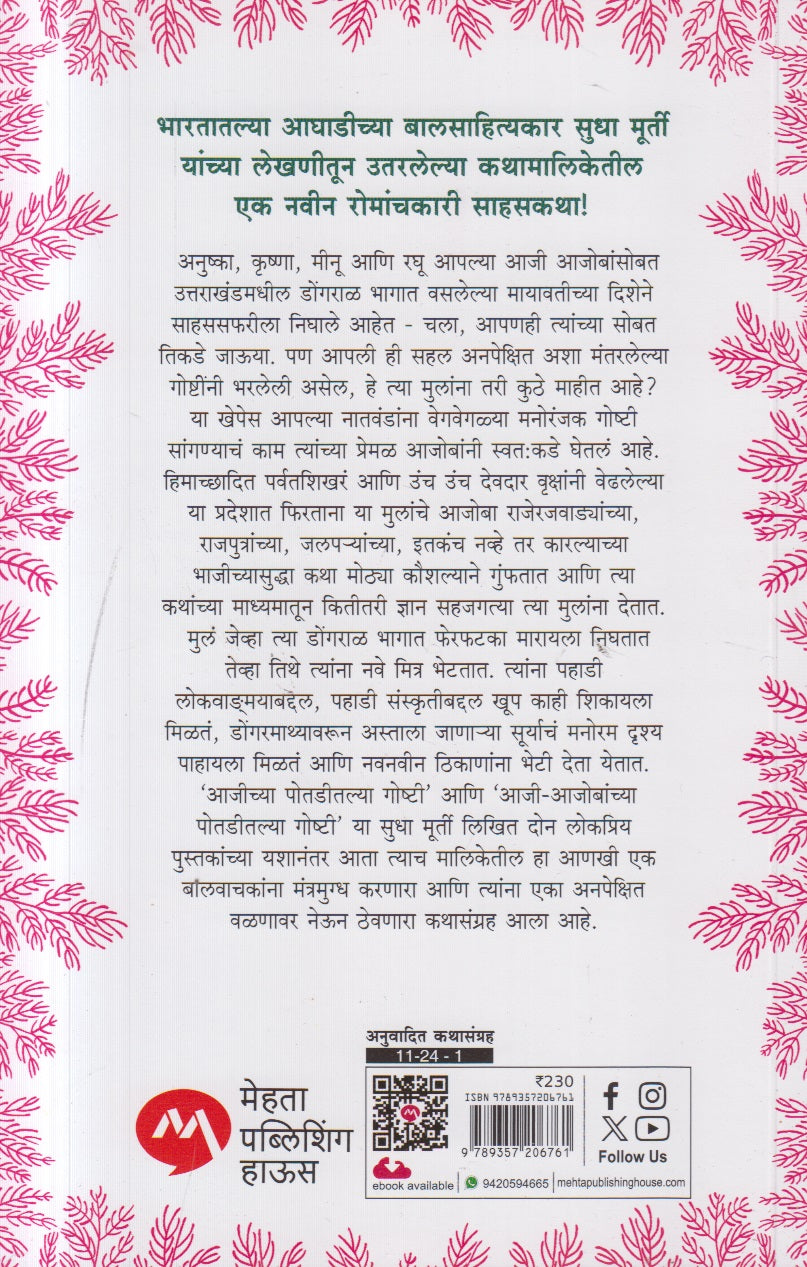 भारतातल्या आघाडीच्या बालसाहित्यकार सुधा मूर्ती
यांच्या लेखणीतून उतरलेल्या कथामालिकेतील
एक नवीन रोमांचकारी साहसकथा!
अनुष्का, कृष्णा, मीनू आणि रघू आपल्या आजी आजोबांसोबत
उत्तराखंडमधील डोंगराळ भागात वसलेल्या मायावतीच्या दिशेने
साहससफरीला निघाले आहेत - चला, आपणही त्यांच्या सोबत
तिकडे जाऊया. पण आपली ही सहल अनपेक्षित अशा मंतरलेल्या
गोष्टींनी भरलेली असेल, हे त्या मुलांना तरी कुठे माहीत आहे?
या खेपेस आपल्या नातवंडांना वेगवेगळ्या मनोरंजक गोष्टी
सांगण्याचं काम त्यांच्या प्रेमळ आजोबांनी स्वत:कडे घेतलं आहे.
हिमाच्छादित पर्वतशिखरं आणि उंच उंच देवदार वृक्षांनी वेढलेल्या
या प्रदेशात फिरताना या मुलांचे आजोबा राजेरजवाड्यांच्या,
राजपुत्रांच्या, जलपऱ्यांच्या, इतकंच नव्हे तर कारल्याच्या
भाजीच्यासुद्धा कथा मोठ्या कौशल्याने गुंफतात आणि त्या
कथांच्या माध्यमातून कितीतरी ज्ञान सहजगत्या त्या मुलांना देतात.
मुलं जेव्हा त्या डोंगराळ भागात फेरफटका मारायला निघतात
तेव्हा तिथे त्यांना नवे मित्र भेटतात. त्यांना पहाडी
लोकवाङ्मयाबद्दल, पहाडी संस्कृतीबद्दल खूप काही शिकायला
मिळतं, डोंगरमाथ्यावरून अस्ताला जाणाऱ्या सूर्याचं मनोरम दृश्य
पाहायला मिळतं आणि नवनवीन ठिकाणांना भेटी देता येतात.
‘आजीच्या पोतडीतल्या गोष्टी’ आणि ‘आजी-आजोबांच्या
पोतडीतल्या गोष्टी’ या सुधा मूर्ती लिखित दोन लोकप्रिय
पुस्तकांच्या यशानंतर आता त्याच मालिकेतील हा आणखी एक
बालवाचकांना मंत्रमुग्ध करणारा आणि त्यांना एका अनपेक्षित
वळणावर नेऊन ठेवणारा कथासंग्रह आला आहे.
अनुवादित कथासंग्रह
11-24 - 1
मेहता
पब्लिशिंग
हाऊस
₹230
ISBN 9789357206761
9 789357 206761
Follow Us
ebook available
9420594665
mehtapublishinghouse.com